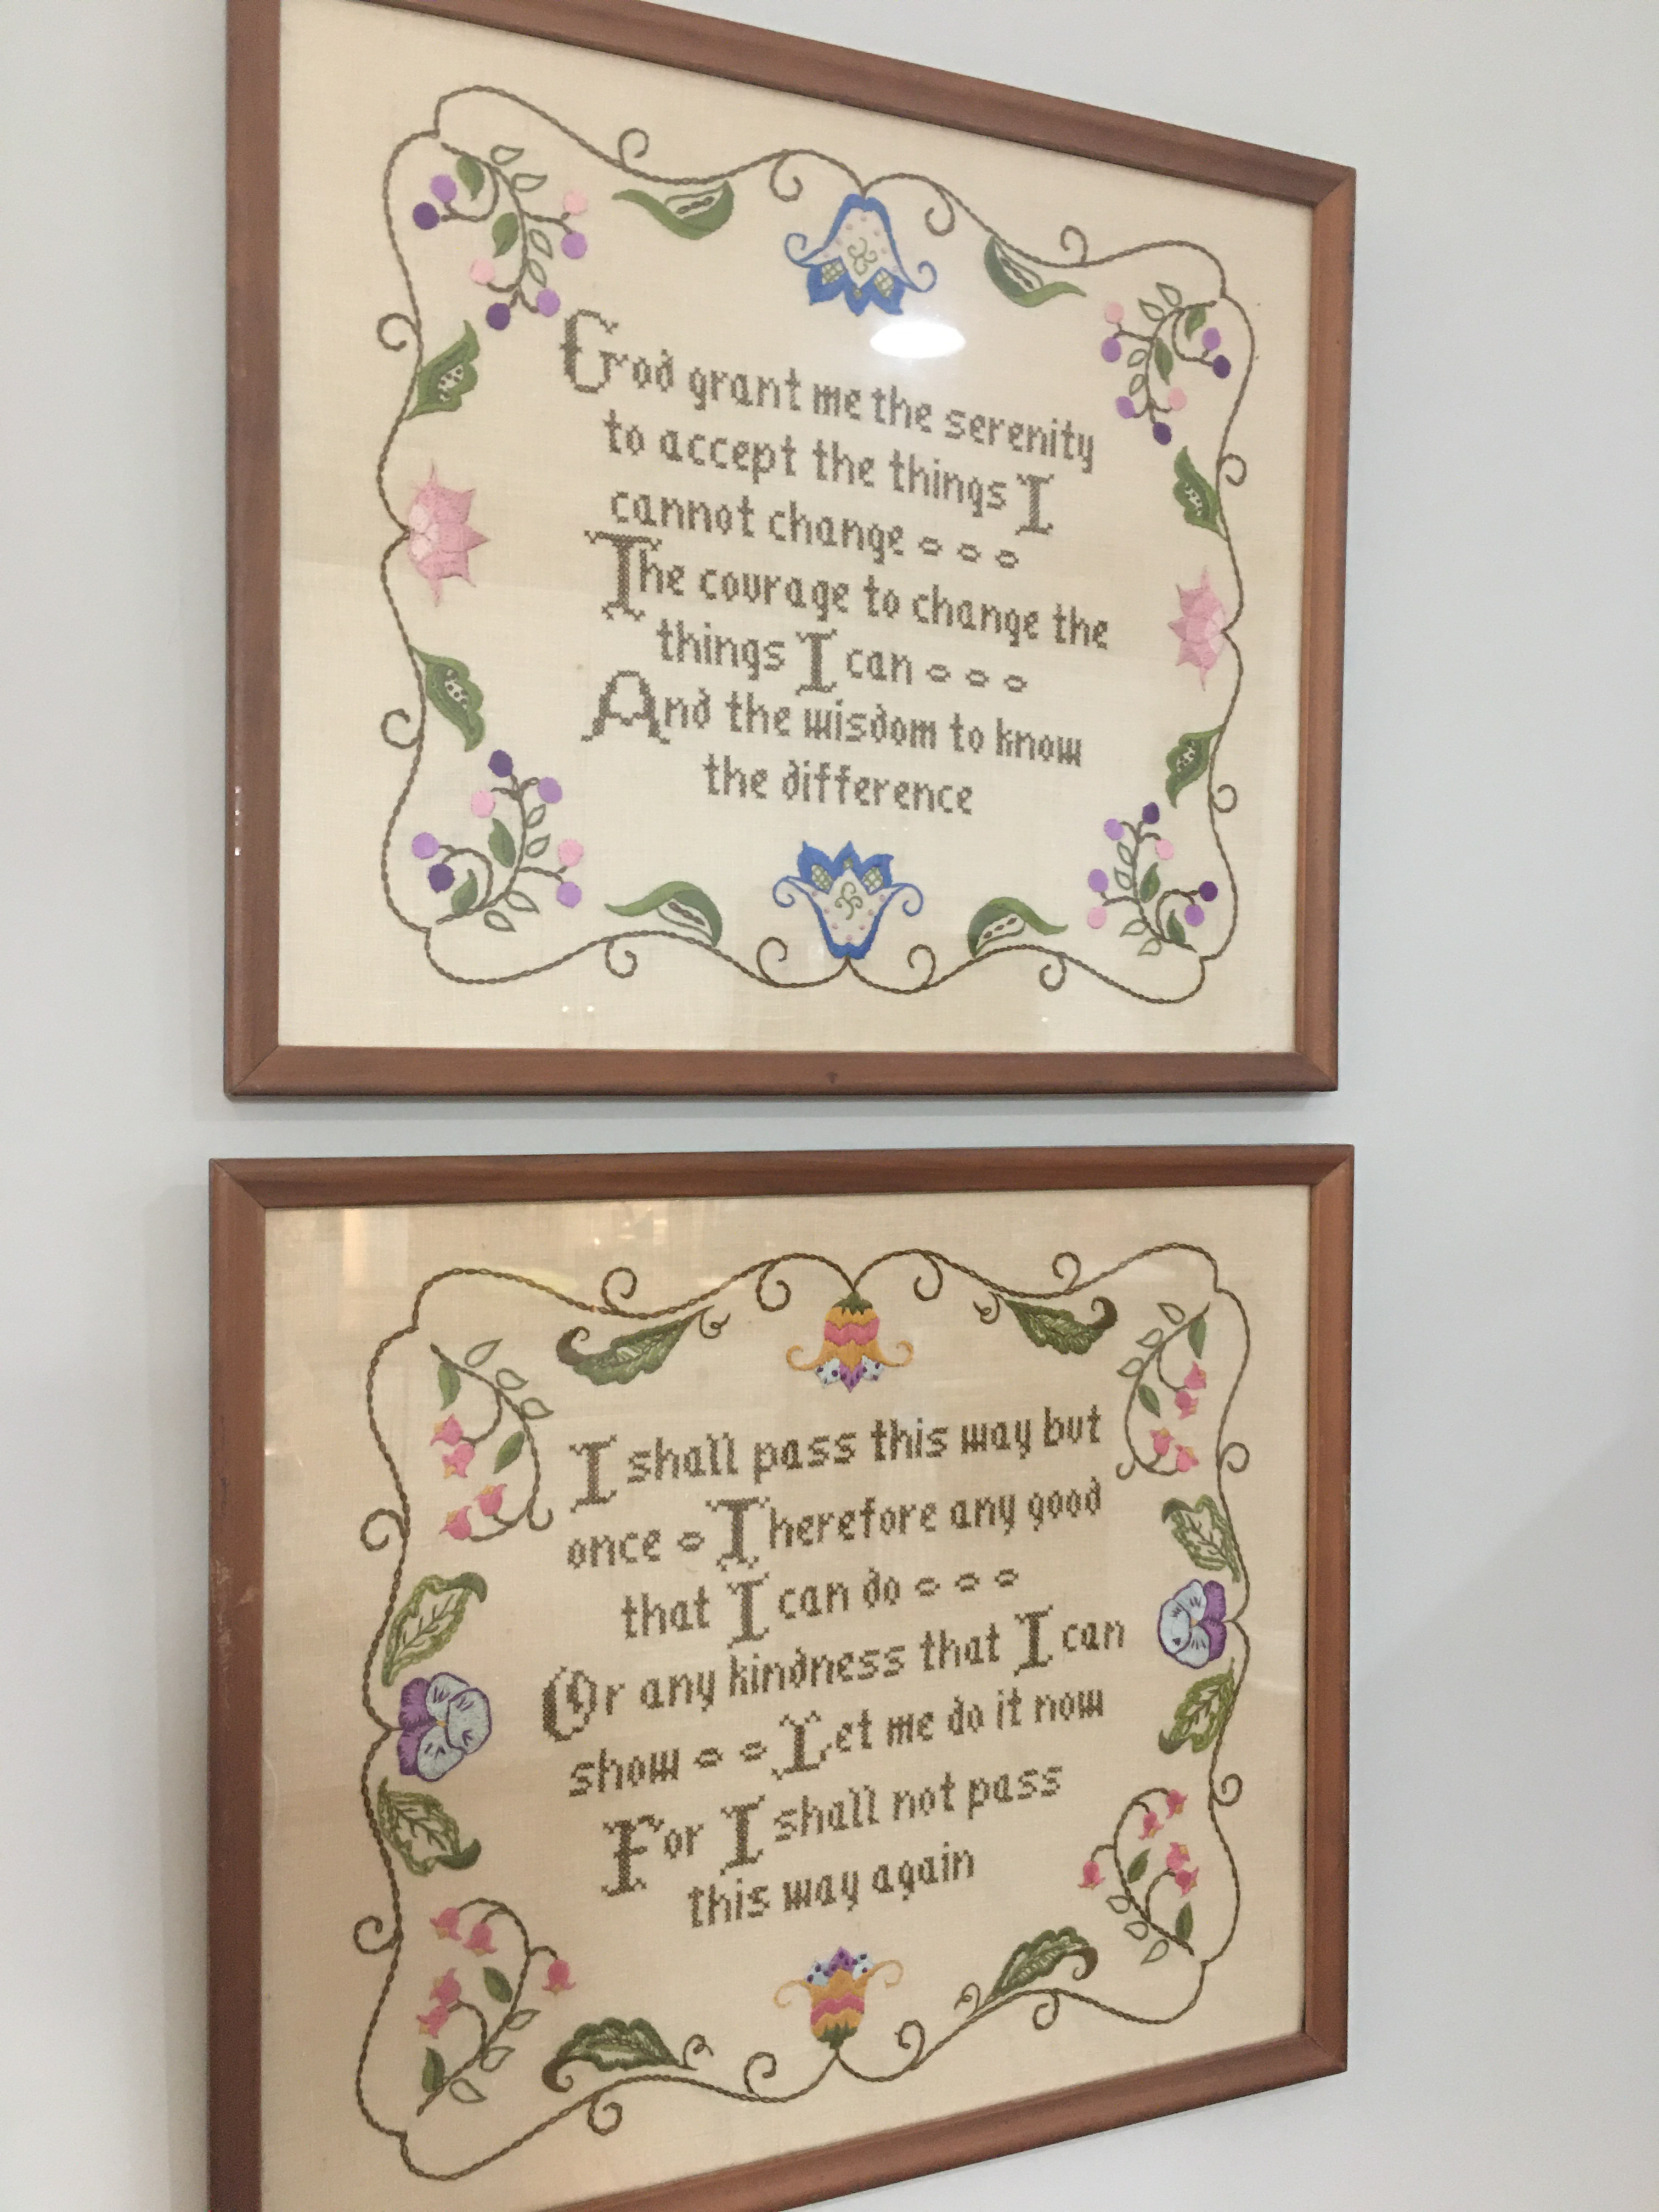 God grant me the serenity
to accept the things I
cannot change - - -
The courage to change the
things I can - - -
And the wisdom to know
the difference
I shall pass this way but
once - Therefore any good
that I can do - - -
Or any kindness that I can
show - - Let me do it now
For I shall not pass
this way again